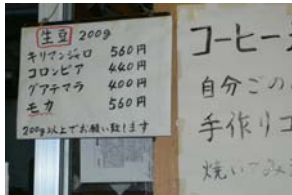 生豆 200g
キリマンジャロ 560円
コロンビア 440円
グアテマラ 400円
モカ 560円
200g以上でお願い致します
コーヒー
自分ごの
手作りコ
焼いてみ